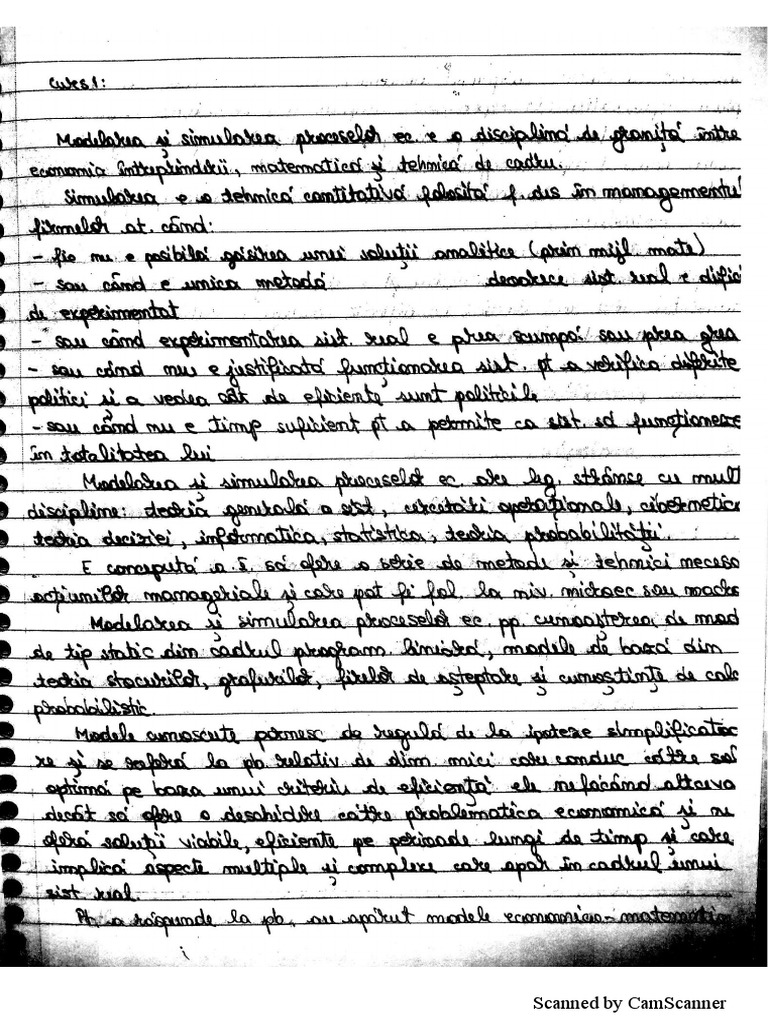 Curs 1:
Modelarea și simularea proceselor ec. e o disciplină de graniță între
economia întreprinderii, matematică și tehnică de calcul.
Simularea e o tehnică cantitativă folosită f. des în managementul
firmelor at. când:
- fie nu e posibilă găsirea unei soluții analitice (prin mijl. mate)
- sau când e unica metodă deoarece sist. real e dific
de experimentat
- sau când experimentarea sist. real e prea scumpă sau prea grea
- sau când nu e justificată funcționarea sist. pt a verifica diferite
politici și a vedea cât de eficiente sunt politicile
- sau când nu e timp suficient pt a permite ca sist. să funcționeze
în totalitatea lui
Modelarea și simularea proceselor ec. are leg. strânse cu mult
discipline: teoria generală a sist, cercetări operaționale, cibernetica
teoria deciziei, informatica, statistica, teoria probabilității.
E concepută a. î. să ofere o serie de metode și tehnici neceso
acțiunilor manageriale și care pot fi fol. la niv. microec sau macro
Modelarea și simularea proceselor ec. pp. cunoașterea de mod
de tip static din cadrul program. liniară, modele de bază din
teoria stocurilor, grafurilor, firelor de așteptare și cunoștințe de calc
probabilistic.
Modele cunoscute pornesc de regulă de la ipoteze simplificatoa
re și se referă la pb. relativ de dim. mici care conduc către sol
optimă pe baza unui criteriu de eficiență ele nefăcând altceva
decât să ofere o deschidere către problematica economică și nu
oferă soluții viabile, eficiente pe perioade lungi de timp și care
implică aspecte multiple și complexe care apar în cadrul unui
sist. real.
Pt. a răspunde la pb. au apărut modele economico-matematic